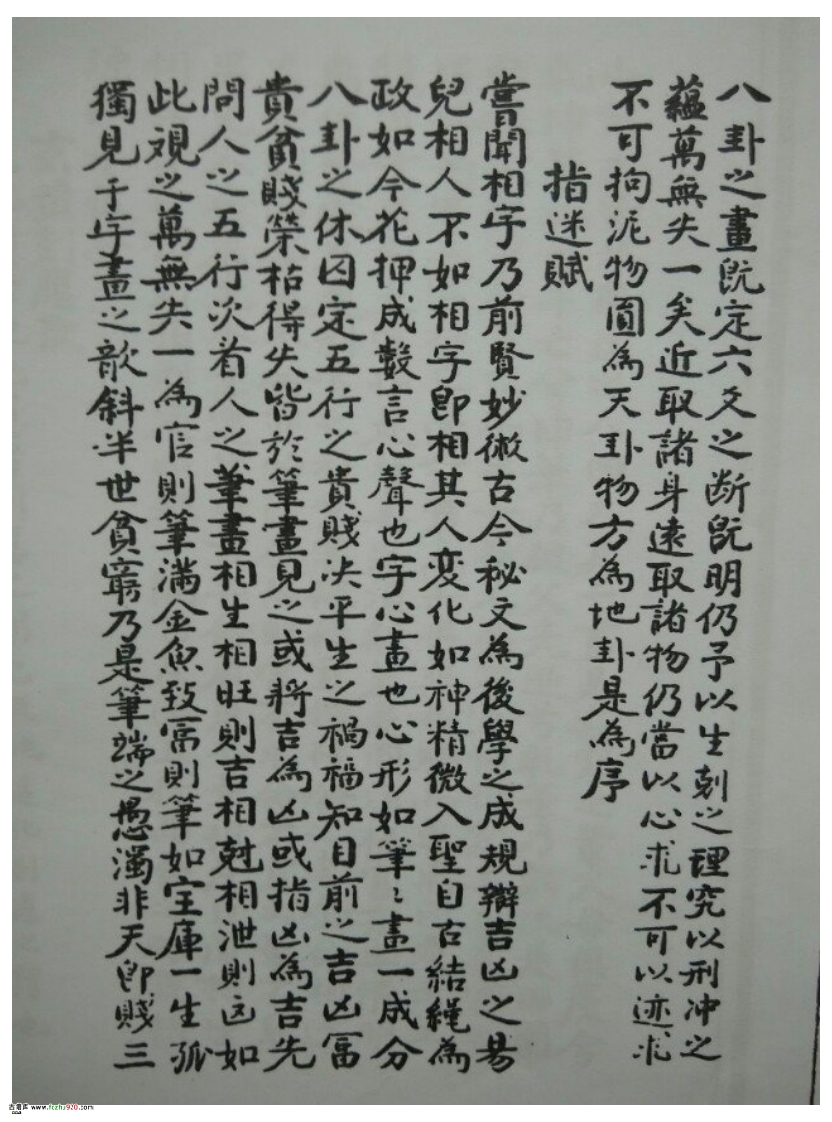 八卦之畫既定六爻之断既明仍予以生剋之理究以刑冲之
蘊萬無失一矣近取諸身遠取諸物仍當以心求不可以迹求
不可拘泥物圓為天卦物方為地卦是為序
指迷賦
嘗聞相字乃前賢妙術古今秘文為後學之成規辯吉凶之易
兒相人不如相字卽相其人变化如神精微入聖自古結繩為
政如今花押成數言心聲也字心畫也心形如筆〻畫一成分
八卦之休囚定五行之貴賤决平生之禍福知目前之吉凶富
貴貧賤榮枯得失皆於筆畫見之或將吉為凶或指凶為吉先
問人之五行次看人之筆畫相生相旺則吉相尅相泄則凶如
此观之萬無失一為官則筆滿金魚致富則筆如宝庫一生孤
獨見于字畫之歆斜半世貧窮乃是筆端之愚濁非夭卽賤三
古書库 www.fczhu920.com